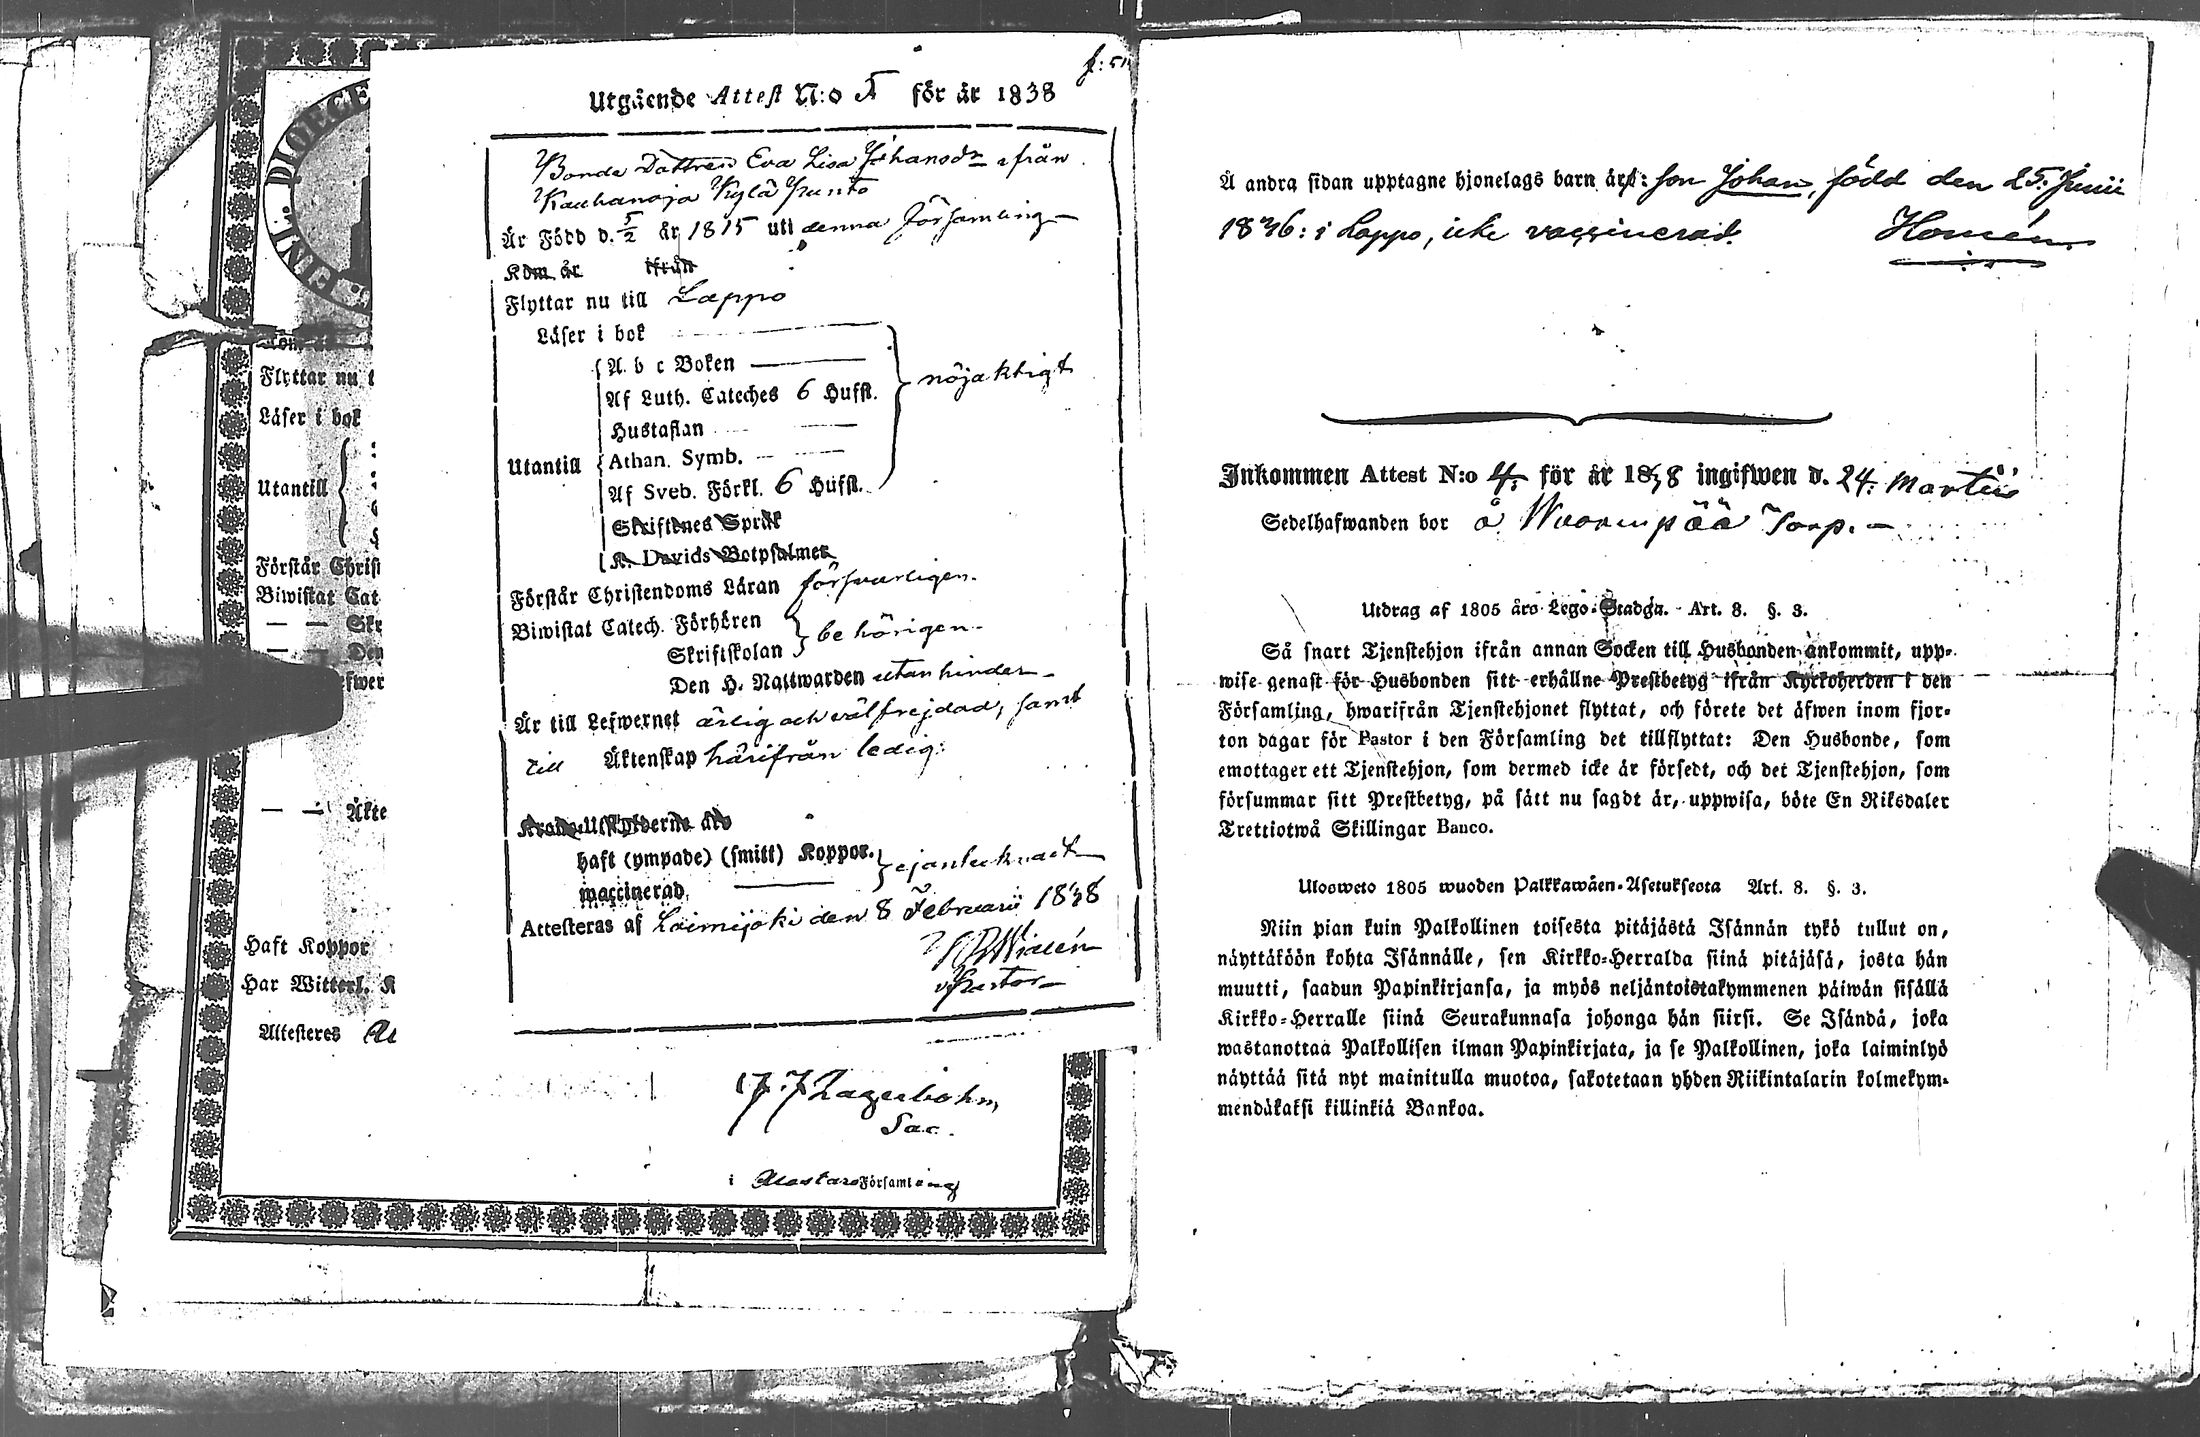 f: 51
Utgående Attest N:o 5 för år 1838
Bonde Dottren Eva Lisa Johansdr ifrån
Kauhanoja Kylä Punto
Är Född d. 5/2 år 1815 uti denna Församling
Kom år ifrån
Flyttar nu till Lappo
Läser i bok
A. b c Boken
Af Luth. Cateches 6 Hufst.
nöjaktigt
Hustaflan
Utantill
Athan. Symb.
Af Sveb. Förkl. 6 Hufst.
Skriftenes Språk
K. Davids Botpsalmer
Förstår Christendoms Läran försvarligen
Biwistat Catech. Förhören
Skriftskolan
behörigen
Den H. Nattwarden utan hinder
Är till Lefwernet ärlig och välfrejdad, samt
till Äktenskap härifrån ledig:
haft (ympade) (smitt) Koppor.
waccinerad
ej antecknadt
Attesteras af Loimijoki den 8 Februarii 1838
DIOECE
Flyttar nu t
Läser i bok
Utantill
Förstår Christ
Biwistat Cat
— — Skr
— — Den
— — Äkte
Haft Koppor
Har Witterl. K
Attesteres
J. J. Lagerbohm
Sac.
i Alastaro Församling
Å andra sidan upptagne hjonelags barn är: son Johan, född den 25. Junii
1836: i Lappo, icke vaccinerad.
Homén
Inkommen Attest N:o 4: för år 1838 ingifwen d. 24. Martii
Sedelhafwanden bor å Wuorenpää Torp.
Utdrag af 1805 åro Lego-Stadga. Art. 8. §. 3.
Så snart Tjenstehjon ifrån annan Socken till Husbonden ankommit, upp-
wise genast för Husbonden sitt erhållne Prestbetyg ifrån Kyrkoherden i den
Församling, hwarifrån Tjenstehjonet flyttat, och förete det äfwen inom fjor-
ton dagar för Pastor i den Församling det tillflyttat: Den Husbonde, som
emottager ett Tjenstehjon, som dermed icke är försedt, och det Tjenstehjon, som
försummar sitt Prestbetyg, på sätt nu sagdt är, uppwisa, böte En Riksdaler
Trettiotwå Skillingar Banco.
Ulosweto 1805 wuoden Palkkawäen-Asetuksesta Art. 8. §. 3.
Niin pian kuin Palkollinen toisesta pitäjästä Isännän tykö tullut on,
näyttäköön kohta Isännälle, sen Kirkko-Herralda siinä pitäjäsä, josta hän
muutti, saadun Papinkirjansa, ja myös neljäntoistakymmenen päiwän sisällä
Kirkko-Herralle siinä Seurakunnasa johonga hän siirsi. Se Isändä, joka
wastanottaa Palkollisen ilman Papinkirjata, ja se Palkollinen, joka laiminlyö
näyttää sitä nyt mainitulla muotoa, sakotetaan yhden Riikintalarin kolmekym-
mendäkaksi killinkiä Bankoa.